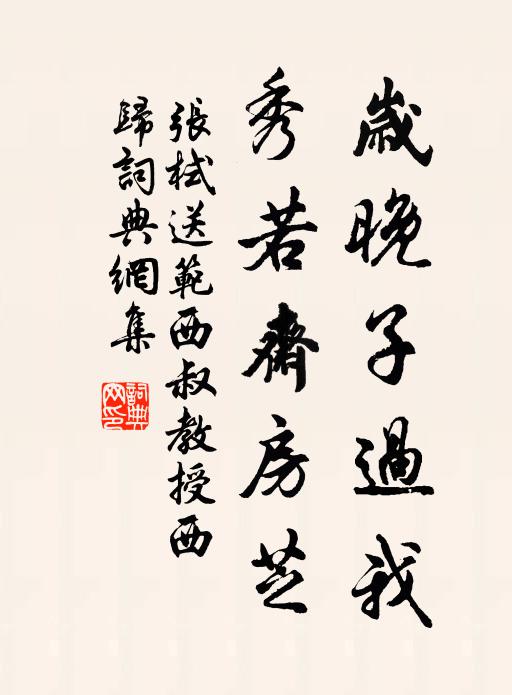 歲晚子過我
秀若齋房芝
張栻送範西叔教授西
歸詞典網集
詞典
网印